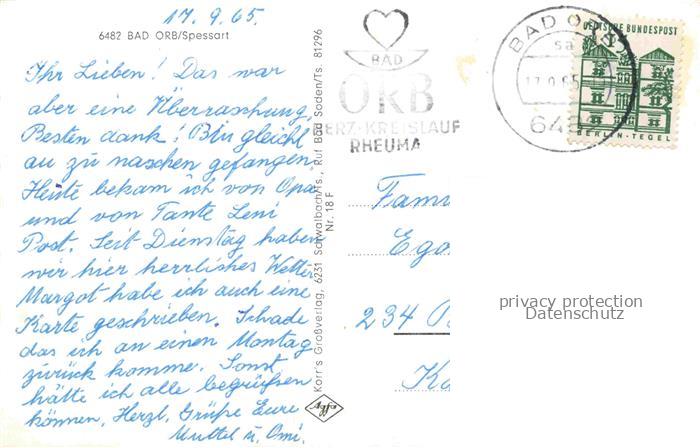 17.9.65.
6482 BAD ORB/Spessart
Ihr Lieben! Das war
aber eine Überraschung,
Besten dank! Bin gleich
an zu naschen gefangen.
Heute bekam ich von Opa
und von Tante Leni
Post. Seit Dienstag haben
wir hier herrliches Wetter
Margot habe ich auch eine
Karte geschrieben. Schade
das ich an einen Montag
zurück komme. Sonst
hätte ich alle begrüßen
können. Herzl. Grüße Eure
Muttel u. Omi.
Korr's Großverlag, 6231 Sulzbach/Ts., Ruf Bad Soden/Ts. 81296
Nr. 18 F
Agfa
BAD
ORB
HERZ-KREISLAUF
RHEUMA
BAD ORB
sa
17.9.65
648
DEUTSCHE BUNDESPOST
BERLIN-TEGEL
Fam
Ego
234
Ka
privacy protection
Datenschutz